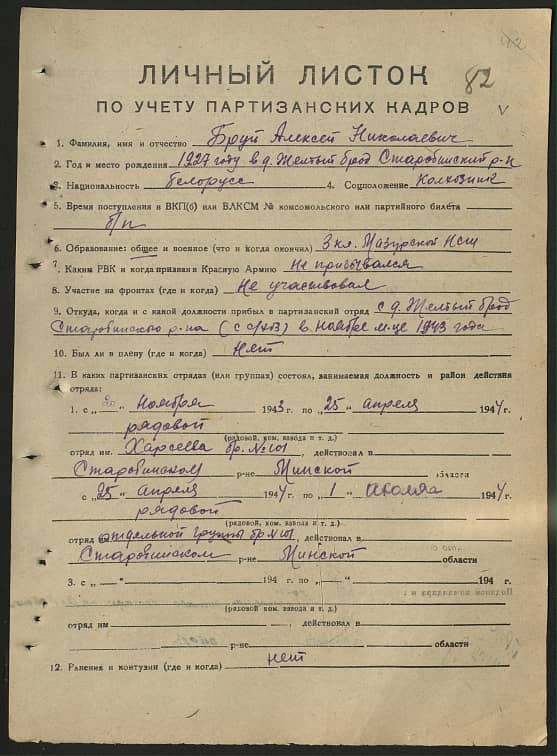 82
ЛИЧНЫЙ ЛИСТОК
ПО УЧЕТУ ПАРТИЗАНСКИХ КАДРОВ
1. Фамилия, имя и отчество Бруй Алексей Николаевич
2. Год и место рождения 1927 году в д. Желтый брод Старобинский р-н
3. Национальность белорусс 4. Соцположение Колхозник
5. Время поступления в ВКП(б) или ВЛКСМ № комсомольского или партийного билета
б/п
6. Образование: общее и военное (что и когда окончил) 3 кл. Мазурской Нсш
7. Каким РВК и когда призван в Красную Армию не призывался
8. Участие на фронтах (где и когда) Не участвовал
9. Откуда, когда и с какой должности прибыл в партизанский отряд с д. Желтый брод
Старобинского р-на ( ) в ноябре м-це 1943 года
10. Был ли в плену (где и когда) Нет
11. В каких партизанских отрядах (или группах) состоял, занимаемая должность и район действия
отряда:
1. с „ “ Ноября 1943 г. по „25“ апреля 1944 г.
рядовой
(рядовой, ком. взвода и т. д.)
отряд им. Харсеева бр. № 101, действовал в
Старобинском р-не Минской области
с „25“ апреля 1944 г. по „1“ июля 1944 г.
рядовой
(рядовой, ком. взвода и т. д.)
отряд отдельной группы бр № 101, действовал в
Старобинском р-не Минской области
3. с „—“ 194 г. по „—“ 194 г.
(рядовой, ком. взвода и т. д.)
отряд им , действовал в
р-не области
12. Ранения и контузии (где и когда) нет